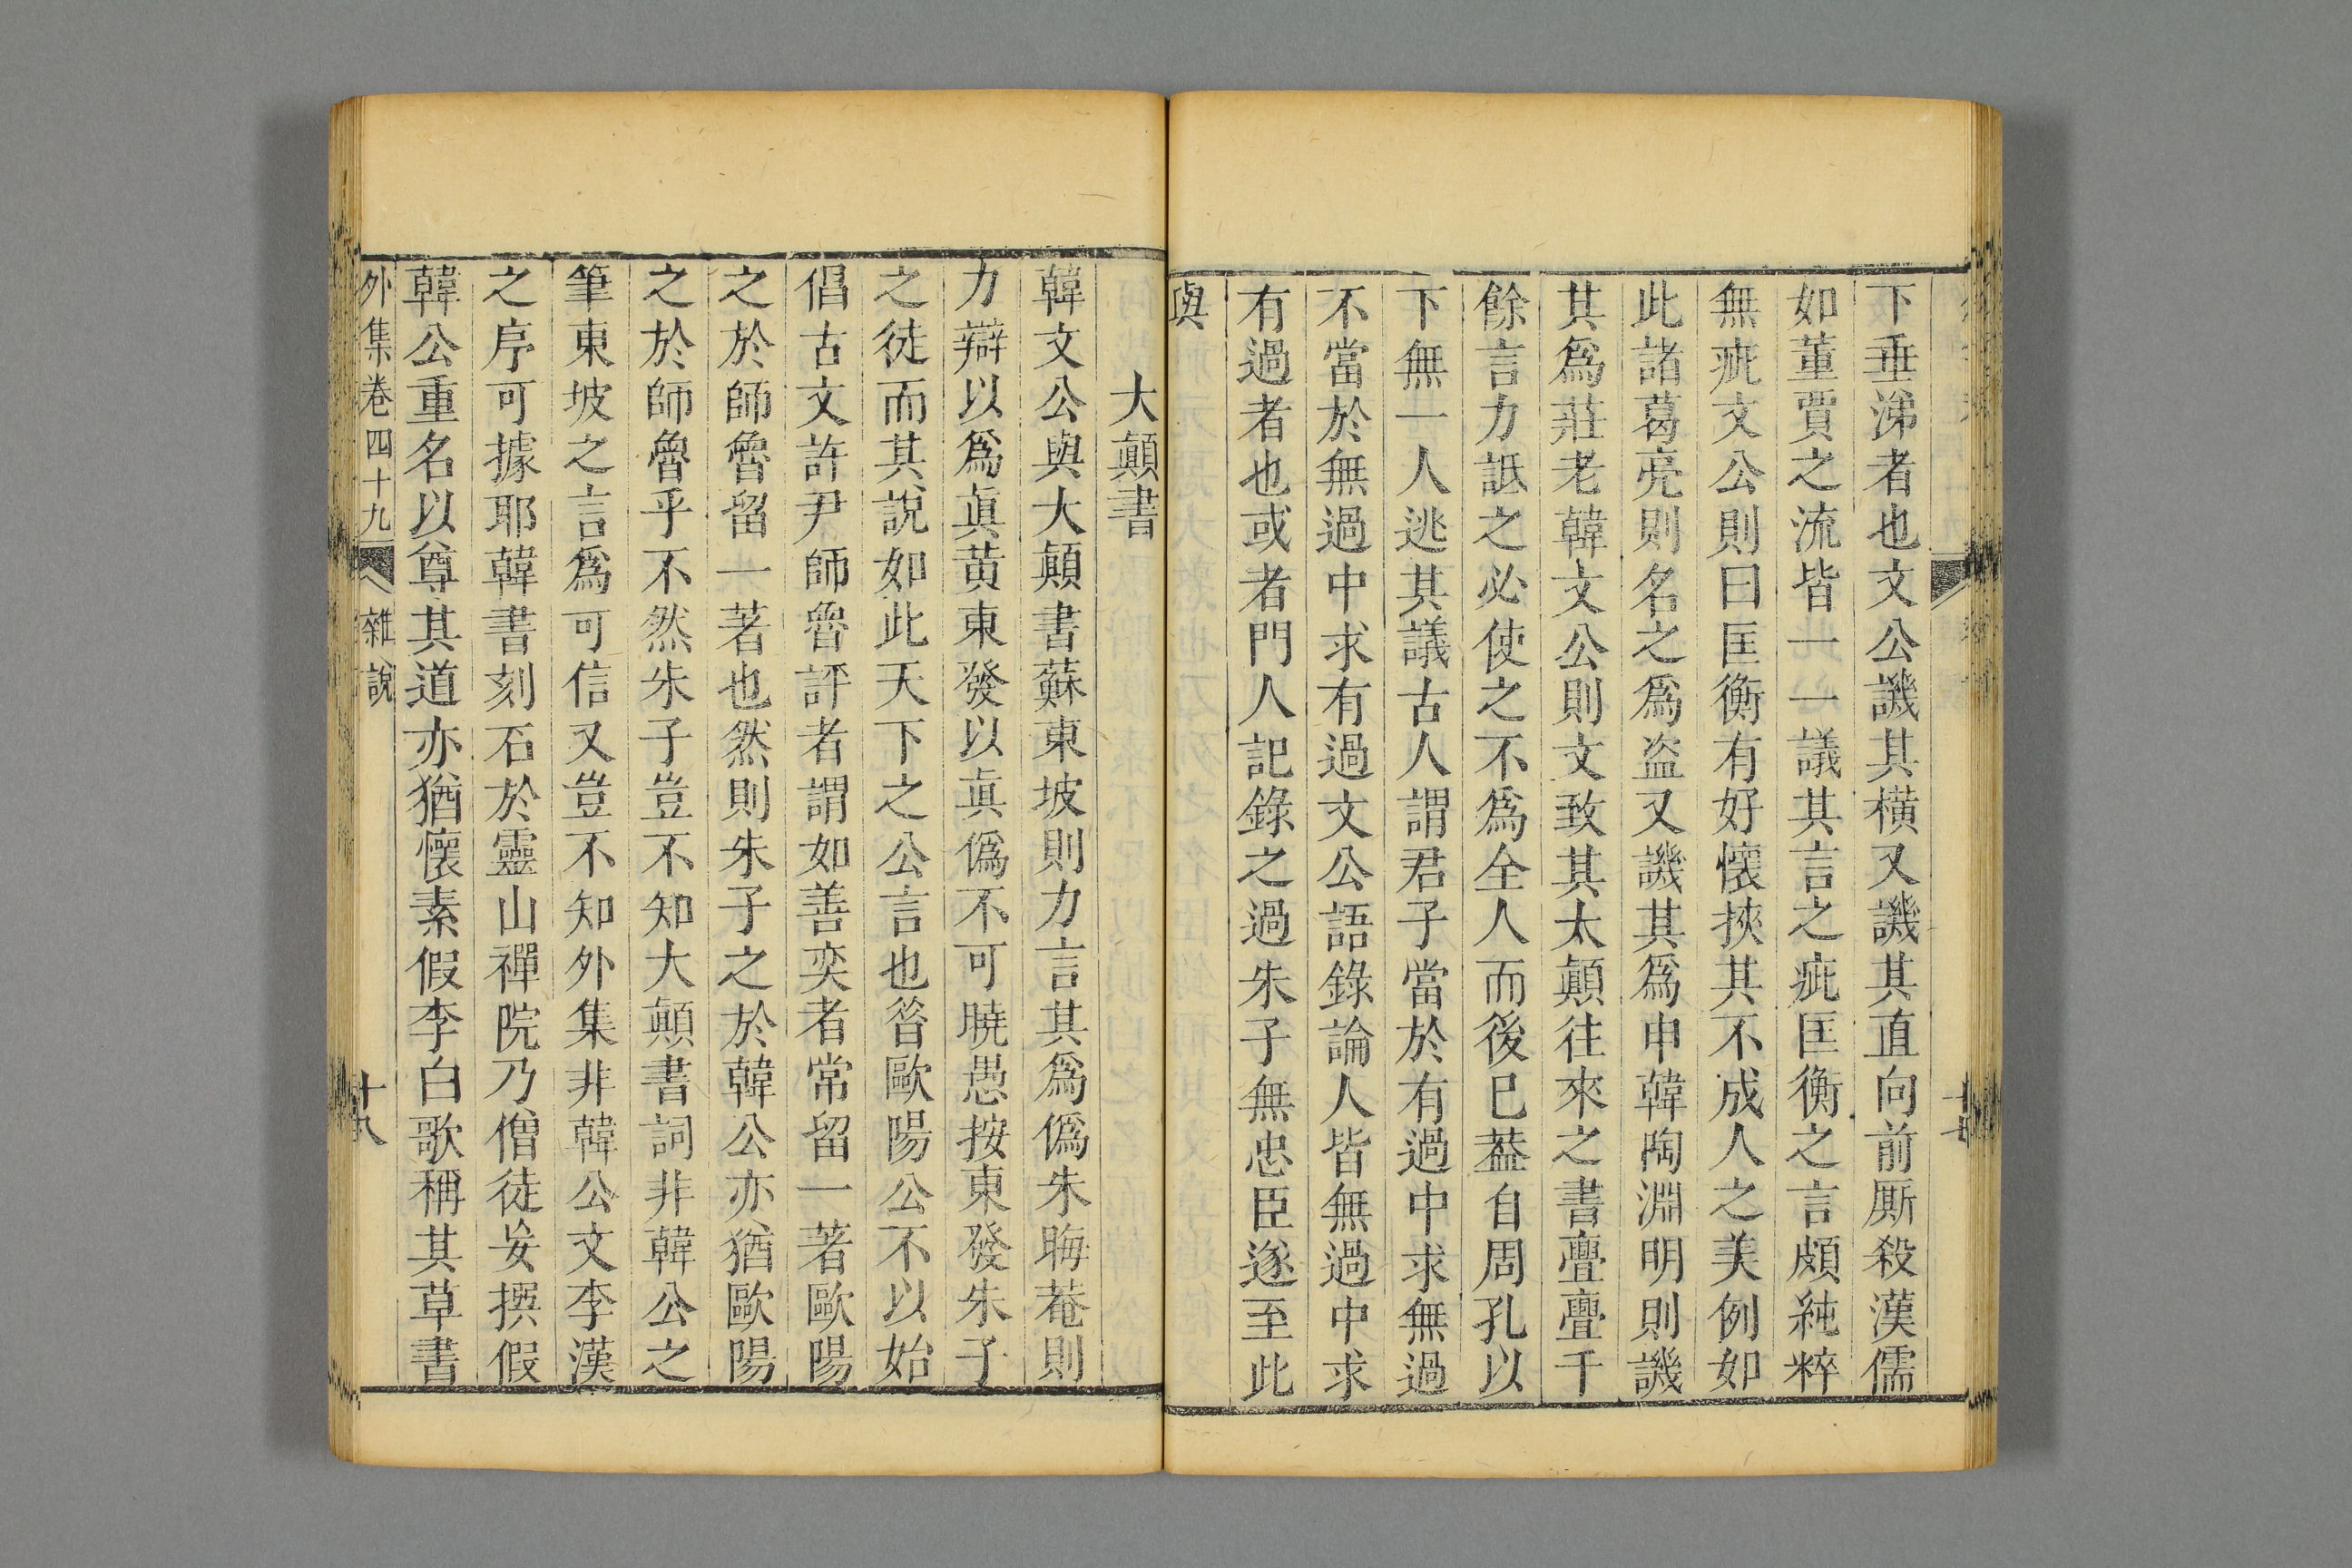 下垂涕者也文公譏其橫又譏其直向前厮殺漢儒
如董賈之流皆一一議其言之疵匡衡之言頗純粹
無疵文公則曰匡衡有好懷挾其不成人之美例如
此諸葛亮則名之爲盗又譏其爲申韓陶淵明則譏
其爲莊老韓文公則文致其太顛往來之書亹亹千
餘言力詆之必使之不爲全人而後巳葢自周孔以
下無一人逃其議古人謂君子當於有過中求無過
不當於無過中求有過文公語錄論人皆無過中求
有過者也或者門人記錄之過朱子無忠臣遂至此
與
大顛書
韓文公與大顛書蘇東坡則力言其爲僞朱晦菴則
力辯以爲眞黄東發以眞僞不可曉愚按東發朱子
之徒而其說如此天下之公言也昝歐陽公不以始
倡古文許尹師魯評者謂如善奕者常留一著歐陽
之於師魯留一著也然則朱子之於韓公亦猶歐陽
之於師魯乎不然朱子豈不知大顛書詞非韓公之
筆東坡之言爲可信又豈不知外集非韓公文李漢
之序可據耶韓書刻石於靈山禪院乃僧徒妄撰假
韓公重名以尊其道亦猶懷素假李白歌稱其草書
外集卷四十九 雜說 十八